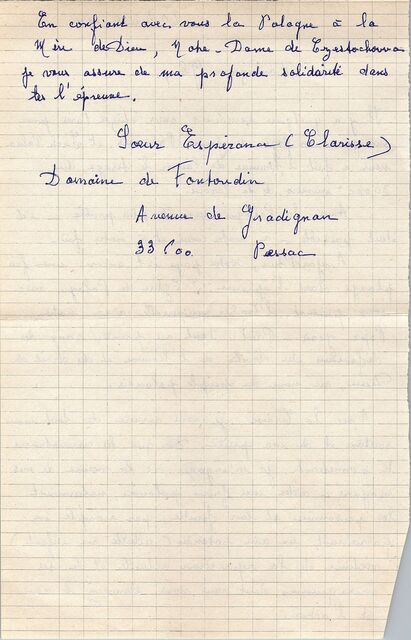 En confiant avec vous la Pologne à la
Mère de Dieu, Notre-Dame de Czestochowa
je vous assure de ma profonde solidarité dans
l'épreuve.
Soeur Espérance (Clarisse)
Domaine de Fontaudin
Avenue de Gradignan
33600 Pessac